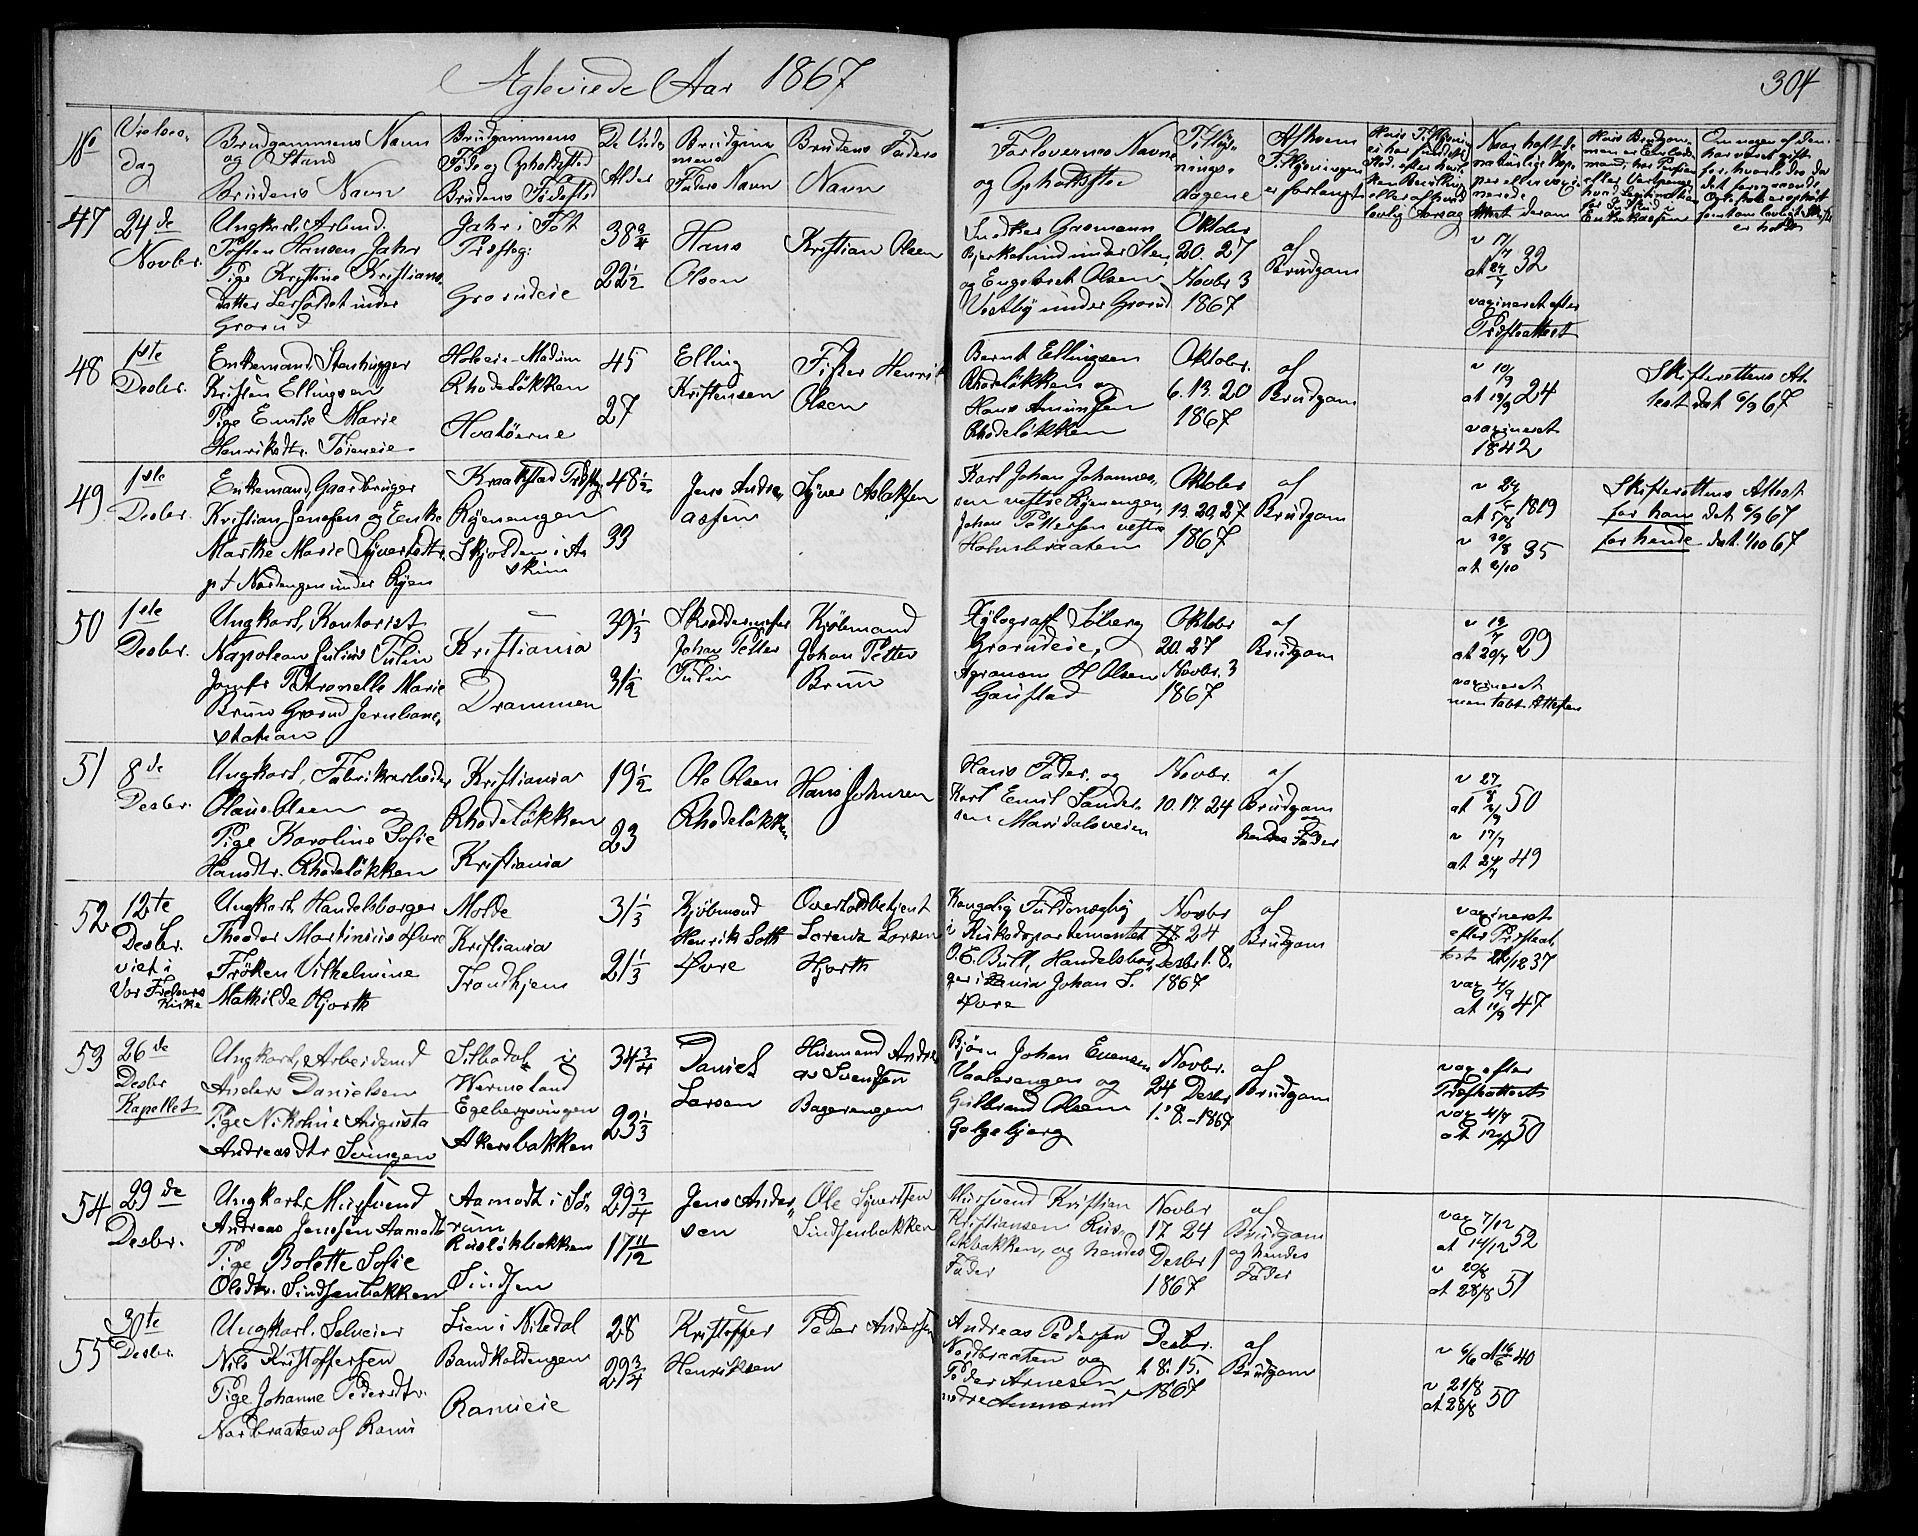 Ægteviede Aar 1867
304
No
Vielses-
dag
Brudgommens Navn
og Stand
Brudens Navn
Brudgommens
Føde og Opholdssted
Brudens Fødested
De Viedes
Alder
Brudgom-
mens
Faders Navn
Brudens Faders
Navn
Forlovernes Navne
og Opholdssted
Tillys-
nings-
dagene
Af hvem
Tillysningen
er forlangt
47
24de
Novbr.
Ungkarl, Arbmd.
Hansen Jahr
Pige Kristine Kristians-
datter under
Grorud
Jahr i
Præsteg:
Grorudeie
38 3/4
22 1/2
Hans
Olsen
Kristian Olsen
Snedker
under
og Engebret Olsen
Vestby under Grorud
Oktober
20. 27
Novbr. 3
1867
af
Brudgom
v 17/7
at 24/7 32
vaccineret efter
Præsteattest
48
1ste
Desbr.
Enkemand, Stenhugger
Kristen Ellingsen
Pige Emilie Marie
Henriksdtr. Tøieneie
Rhodeløkken
Hvaløerne
45
27
Elling
Kristensen
Henrik
Olsen
Bernt Ellingsen
Rhodeløkken og
Hans Amundsen
Rhodeløkken
Oktober.
6. 13. 20
1867
af
Brudgom
v 10/9
at 19/9 24
vaccineret
1842
Skifterettens At-
test dat 6/9 67
49
1ste
Desbr.
Enkemand, Gaardbruger
Kristian Jensen og Enke
Marthe Marie Syvertsdtr.
p.t. Nordengen under Ryen
Kraakstad Præsteg
Ryenengen
Skjolden i As
kim
48 1/2
33
Jens Andre-
assen
Syver Aslaksen
Karl Johan Johannes-
sen vestre Ryenengen,
Johan Pettersen vestre
Holmbraaten
Oktober
13. 20. 27
1867
af
Brudgom
at 5/8 1819
v 30/8 35
at 6/10
Skifterettens Attest
for ham dat 6/9 67
for hende dat. 1/10 67
50
1ste
Desbr.
Ungkarl, Kontorist
Napoleon Julius Tulin
Jomfr Petronelle Marie
Bruun Grorud Jernbane-
station
Kristiania
Drammen
39 1/3
31 1/2
Skræddermester
Johan Petter
Tulin
Kjøbmand
Johan Petter
Bruun
Xylograf Solberg
Grorudeie,
Agronom H Olsen
Gaustad
Oktober
20. 27
Novbr. 3
1867
af
Brudgom
at 20/7 29
vaccineret
men tabt Attesten
51
8de
Desbr.
Ungkarl, Fabrikarbeider
Olaus Olsen og
Pige Karoline Sofie
Hansdtr. Rhodeløkken
Kristiania
Rhodeløkken
Kristiania
19 1/2
23
Ole Olsen
Rhodeløkken
Hans Johnsen
Hans Fader. og
Karl Emil Sander-
sen Maridalsveien
Novbr.
10. 17. 24
af
Brudgom
og
hendes Fader
v 27/8
at 3/9 50
v 17/7
at 24/7 49
52
12te
Desbr.
viet i
Vor Frelsers
Kirke
Ungkarl, Handelsborger
Theodor Martinius Øvre
Frøken Vilhelmine
Mathilde Hjorth
Molde
Kristiania
Trondhjem
31 1/3
21 1/3
Kjøbmand
Henrik Soth
Øvre
Overtoldbetjent
Lorentz Larsen
Hjorth
Kongelig Fuldmægtig
i Kirkedepartementet
O. E. Bull, Handelsbor-
ger i Xania Johan S.
Øvre
Novbr
17 24
Desbr 1. 8.
1867
af
Brudgom
vaccineret
efter Præsteat-
test 21/12 37
vac 4/9
at 11/9 47
53
26de
Desbr
Kapellet
Ungkarl, Arbeidsmd
Anders Danielsen
Pige Nikoline Augusta
Andreasdtr Svingen
Silbodal i
Wermeland
Egebergsvingen
Akersbakken
34 3/4
23 1/3
Daniel
Larsen
Husmand Andre
as Svendsen
Bagerengen
Bjørn Johan Evensen
Vaalerengen og
Gulbrand Olsen
Galgebjerg
Novbr.
24 Desbr
1. 8. - 1867
af
Brudgom
vac efter
Præsteattest
vac 4/7
at 12/7 50
54
29de
Desbr.
Ungkarl, Mursvend
Andreas Jensen Aamodt
Pige Bolette Sofie
Olsdtr. Sindsenbakken
Aamodt i Sø-
rum
Ruseløkbakken
Sindsen
29 3/4
17 11/12
Jens Ander-
sen
Ole Syvertsen
Sindsenbakken
Mursvend Kristian
Kristiansen Ruse-
løkbakken, og hendes
Fader
Novbr
17 24
Desbr 1
1867
af
Brudgom
og hendes
Fader
vac 7/12
at 14/12 52
v 20/8
at 28/8 51
55
30te
Desbr.
Ungkarl, Selveier
Nils Kristoffersen
Pige Johanne Pedersdtr.
Nordbraaten af
Lien i Nitedal
Bandkoldengen
28
29 3/4
Kristoffer
Henriksen
Peder Andersen
Andreas Pedersen
Nordbraaten og
Peder Arnesen
nedre Ammerud
Desbr.
1. 8. 15.
1867
af
Brudgom
v 6/6 at 16/6 40
v 21/8
at 28/8 50